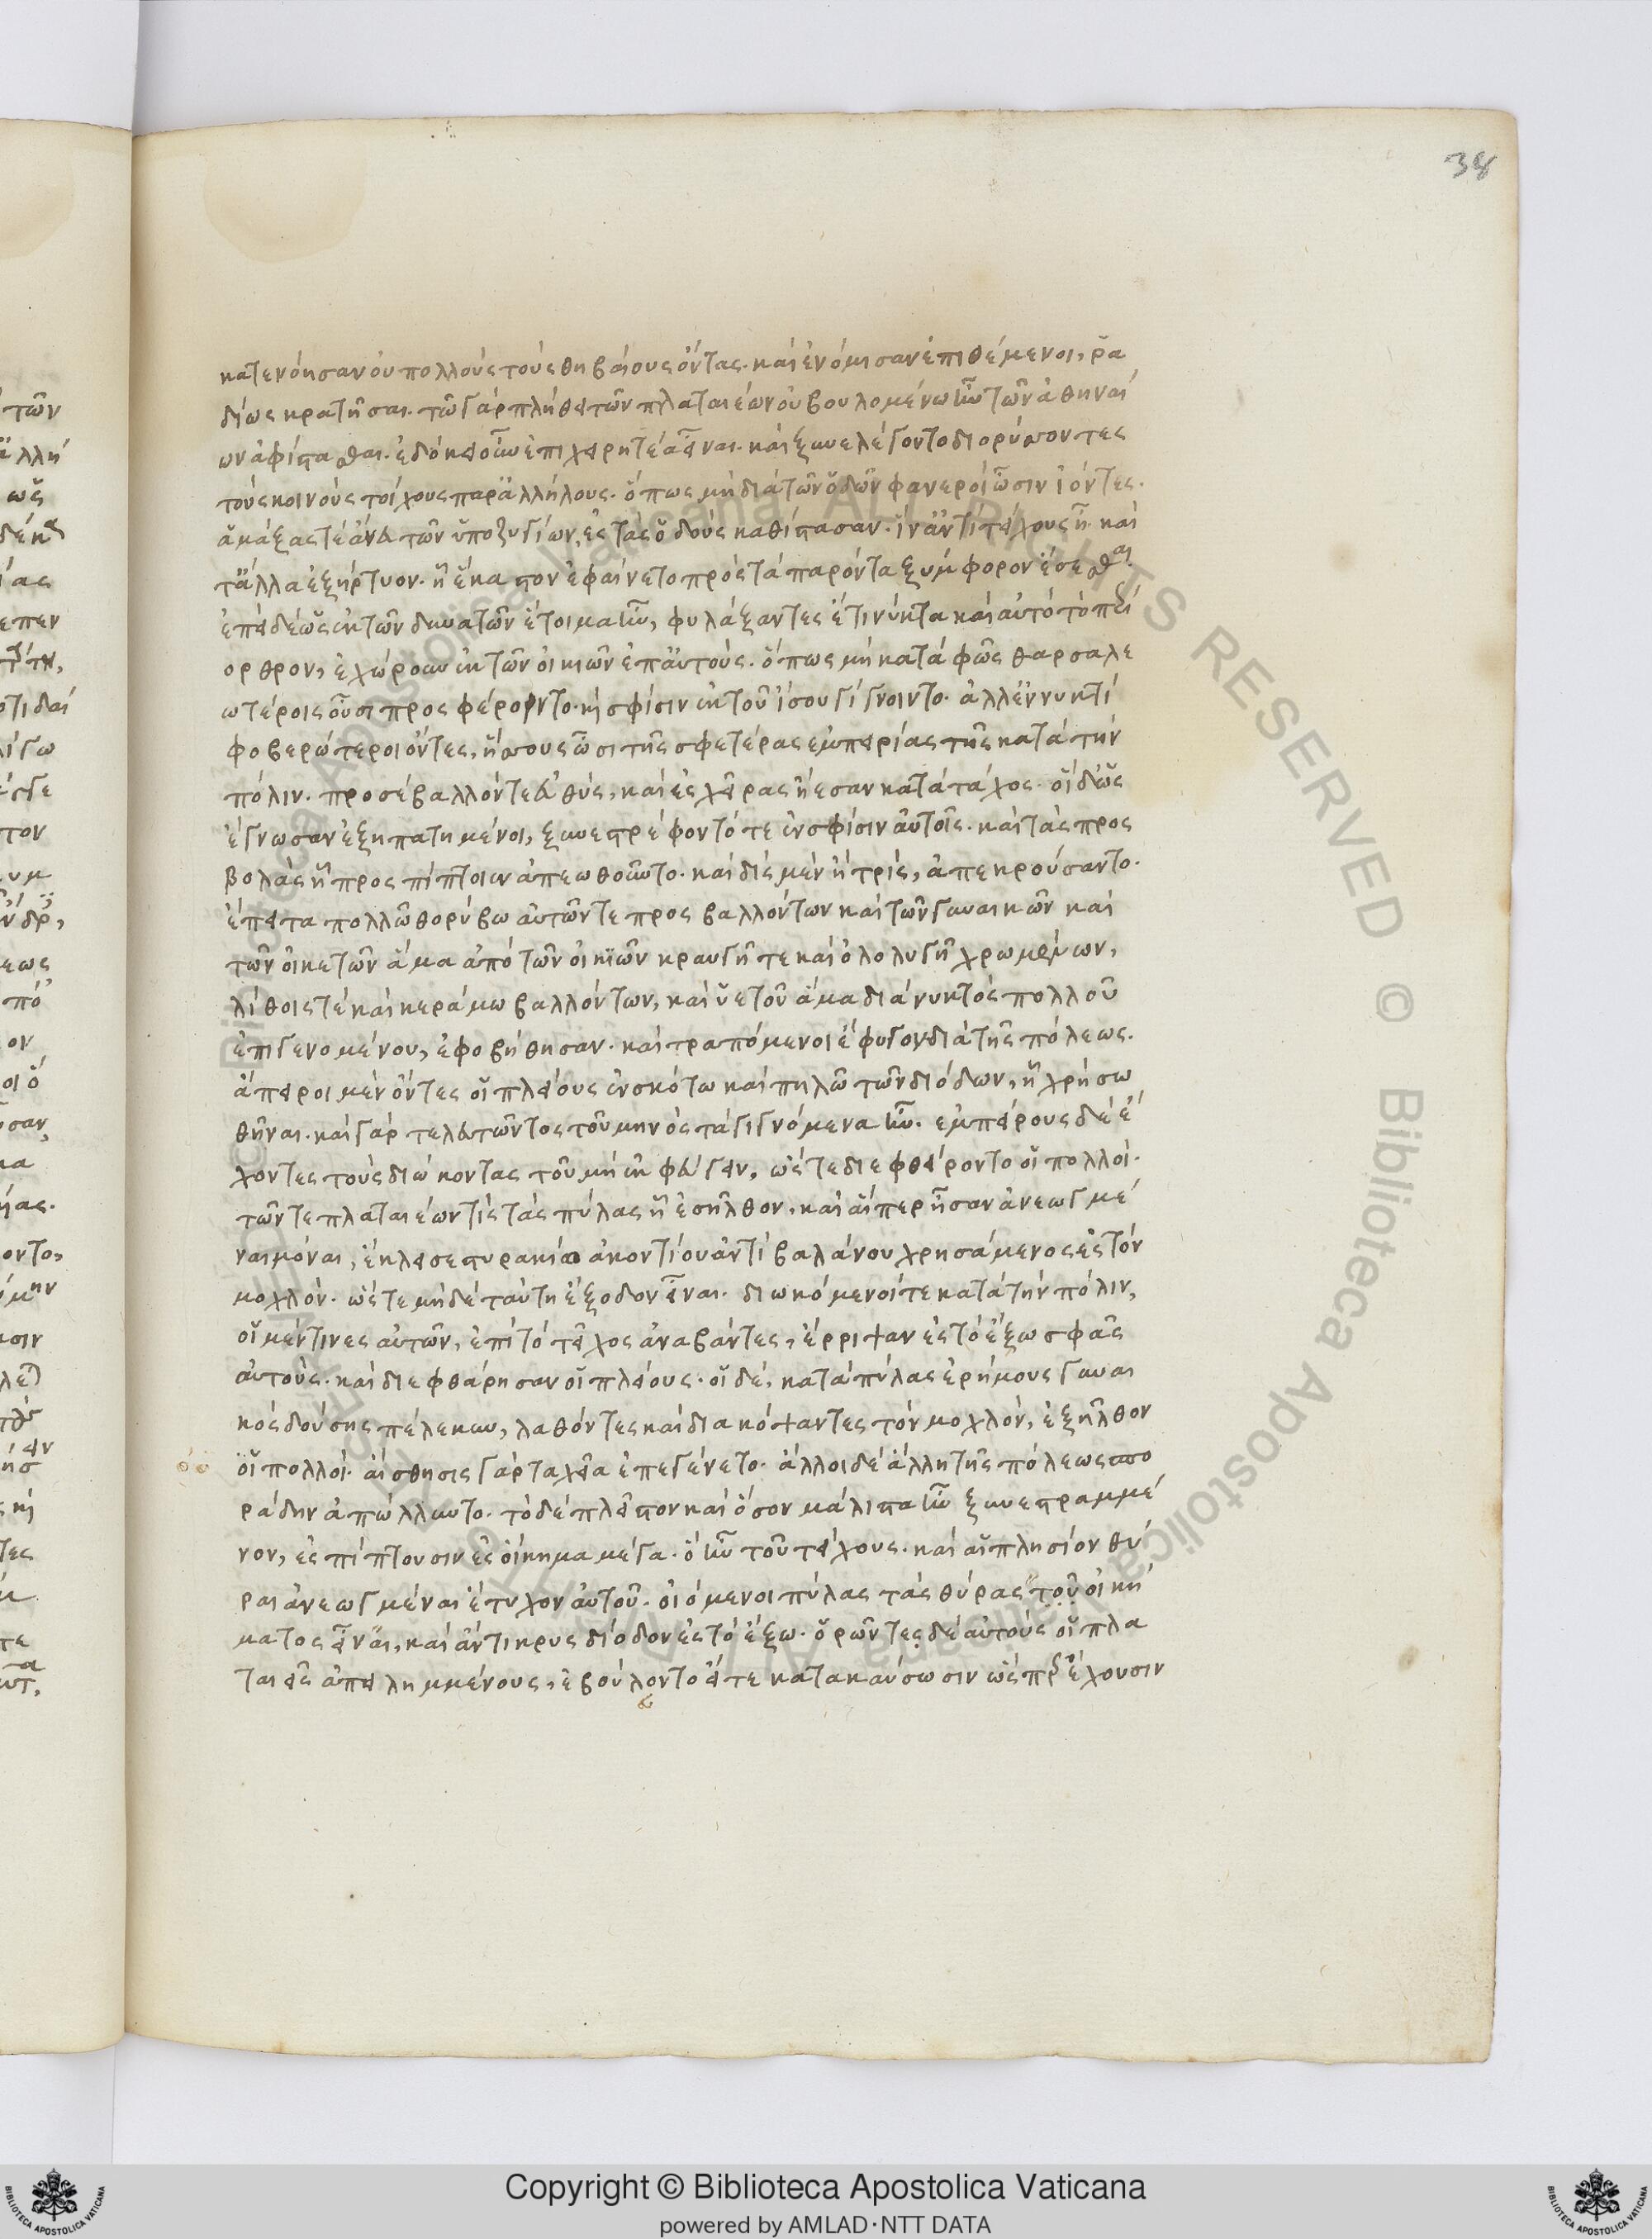 38
κατενόησαν οὐ πολλοὺς τοὺς θηβαίους ὄντας. καὶ ἐνόμισαν ἐπιθέμενοι, ῥᾳ
δίως κρατῆσαι. τῶ γὰρ πλήθει τῶν πλαταιέων οὐ βουλομένω ἦν τῶν ἀθηναί
ων ἀφίστασθαι. ἐδόκει οὖν ἐπιχειρητέα εἶναι. καὶ ξυνελέγοντο διορύσσοντες
τοὺς κοινοὺς τοίχους παρ' ἀλλήλους. ὅπως μὴ διὰ τῶν ὁδῶν φανεροὶ ὦσιν ἰόντες.
ἁμάξας τὲ ἄνευ τῶν ὑποζυγίων, ἐς τὰς ὁδοὺς καθίστασαν. ἵν' ἀντὶ τείχους ἦ. καὶ
τἄλλα ἐξήρτυον. ἧ ἕκαστον ἐφαίνετο πρὸς τὰ παρόντα ξυμφορον ἔσεσθαι.
ἐπεὶ δὲ ὡς ἐκ τῶν δυνατῶν ἕτοιμα ἦν, φυλάξαντες ἔτι νύκτα καὶ αὐτὸ τὸ περὶ
ορθρον, ἐχώρουν ἐκ τῶν οἰκιῶν ἐπ' αὐτούς. ὅπως μὴ κατὰ φῶς θαρσαλε
ωτέροις οὖσι προσφέροιντο. κὴ σφίσιν ἐκ τοῦ ἴσου γίγνοιντο. ἀλλ' ἐν νυκτὶ
φοβερώτεροι ὄντες, ἥσσους ὦσι τῆς σφετέρας εμπειρίας τῆς κατὰ τὴν
πόλιν. προσέβαλλόν τε εὐθύς, καὶ ἐς χεῖρας ἤεσαν κατὰ τάχος. οἱ δ' ὡς
ἔγνωσαν ἐξηπατημένοι, ξυνεστρέφοντό τε ἐν σφίσιν αὐτοῖς. καὶ τὰς προς
βολὰς ἧ προσπίπτοιεν ἀπεωθοῦντο. καὶ δὶς μὲν ἢ τρίς, ἀπεκρούσαντο.
ἔπειτα πολλῶ θορύβω αὐτῶν τε προσβαλλόντων καὶ τῶν γυναικῶν καὶ
τῶν οἰκετῶν ἅμα ἀπὸ τῶν οἰκϊῶν κραυγῆ τε καὶ ὀλολυγῆ χρωμένων,
λίθοις τὲ καὶ κεράμω βαλλόντων, καὶ ὑετοῦ ἅμα διὰ νυκτὸς πολλοῦ
ἐπιγενομένου, ἐφοβήθησαν. καὶ τραπόμενοι ἔφυγον διὰ τῆς πόλεως.
ἄπειροι μὲν ὄντες οἱ πλείους ἐν σκότω καὶ πηλῶ τῶν διόδων, ἧ χρὴ σω
θῆναι. καὶ γὰρ τελευτῶντος τοῦ μηνὸς τὰ γιγνόμενα ἦν. εμπείρους δὲ ἔ
χοντες τοὺς διώκοντας τοῦ μὴ ἐκφεύγειν, ὥστε διεφθείροντο οἱ πολλοί.
τῶν τε πλαταιέων τίς τὰς πύλας ἧ ἐσῆλθον, καὶ αἵπερ ἦσαν ἀνεωγμέ
ναι μόναι, ἔκλεισε στυρακίω ἀκοντίου ἀντὶ βαλάνου χρησάμενος ἐς τὸν
μοχλόν. ὥστε μηδὲ ταύτη ἔξοδον εἶναι. διωκόμενοί τε κατὰ τὴν πόλιν,
οἱ μέν τινες αὐτῶν, ἐπὶ τὸ τεῖχος ἀναβάντες, ἔρριψαν ἐς τὸ ἔξω σφᾶς
αὐτούς. καὶ διεφθάρησαν οἱ πλείους. οἱ δὲ, κατὰ πύλας ἐρήμους γυναι
κὸς δούσης πέλεκυν, λαθόντες καὶ διακόψαντες τὸν μοχλὸν, ἐξῆλθον
οὐ πολλοί. αἴσθησις γὰρ ταχεῖα ἐπεγένετο. ἄλλοι δὲ ἄλλη τῆς πόλεως σπο
ράδην ἀπώλλυντο. τὸ δὲ πλεῖστον καὶ ὅσον μάλιστα ἦν ξυνεστραμμέ
νον, ἐσπίπτουσιν ἐς οἴκημα μέγα. ὃ ἦν τοῦ τείχους. καὶ αἱ πλησίον θύ
ραι ἀνεωγμέναι ἔτυχον αὐτοῦ. οἰόμενοι πύλας τὰς θύρας τοῦ οἰκή
ματος εἶναι, καὶ ἄντικρυς δίοδον ἐς τὸ ἔξω. ὁρῶντες δὲ αὐτοὺς οἱ πλα
ταιεῖς ἀπειλημμένους, ἐβουλοντο εἴτε κατακαύσωσιν ὥσπερ ἔχουσιν
Copyright © Biblioteca Apostolica Vaticana
powered by AMLAD·NTT DATA